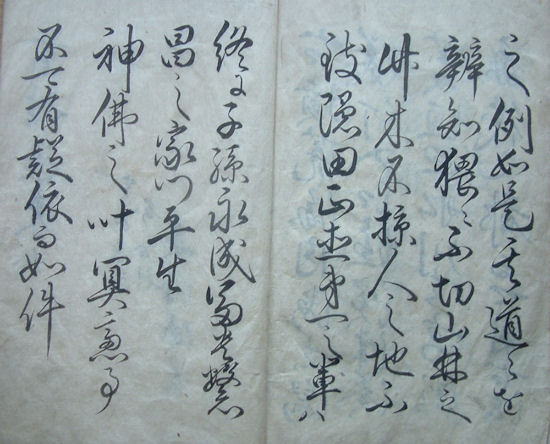 之例如是其道々を
辨知猥ニ不切山林之
竹木不掠人之地不
致隠田正直第一之輩ハ
終に子孫永成冨貴繁
昌之家門平生
神佛之叶冥慮事
不可有疑依而如件